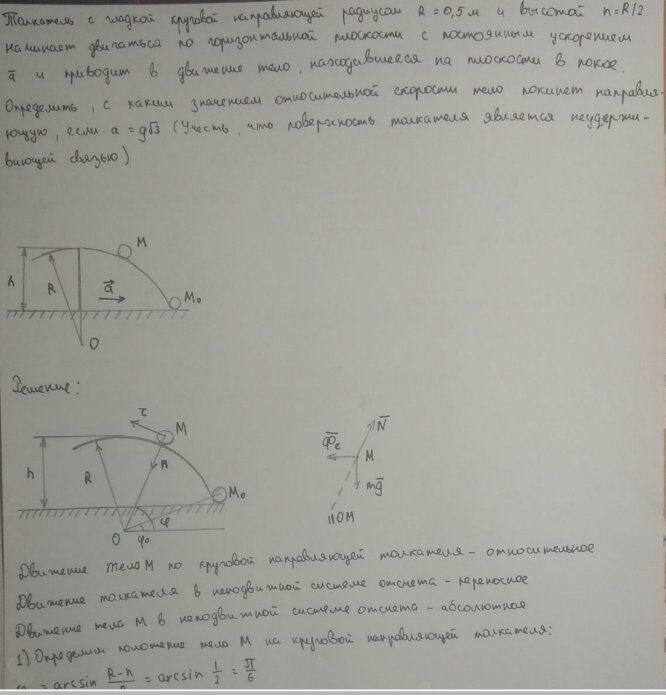 Толкатель с гладкой круговой направляющей радиусом R = 0,5 м и высотой h = R/2
начинает двигаться по горизонтальной плоскости с постоянным ускорением
a̅ и приводит в движение тело, находившееся на плоскости в покое.
Определить, с каким значением относительной скорости тело покинет направля-
ющую, если a = g√3 (Учесть, что поверхность толкателя является неудержи-
вающей связью)
h
R
a⃗
M
M₀
O
Решение:
h
R
τ
M
n
M₀
φ
O
φ₀
Φ̅e
N̅
M
mg̅
||OM
Движение тела M по круговой направляющей толкателя - относительное
Движение толкателя в неподвижной системе отсчета - переносное
Движение тела M в неподвижной системе отсчета - абсолютное
1) Определим положение тела M на круговой направляющей толкателя:
= arcsin (R-h)/R = arcsin 1/2 = π/6